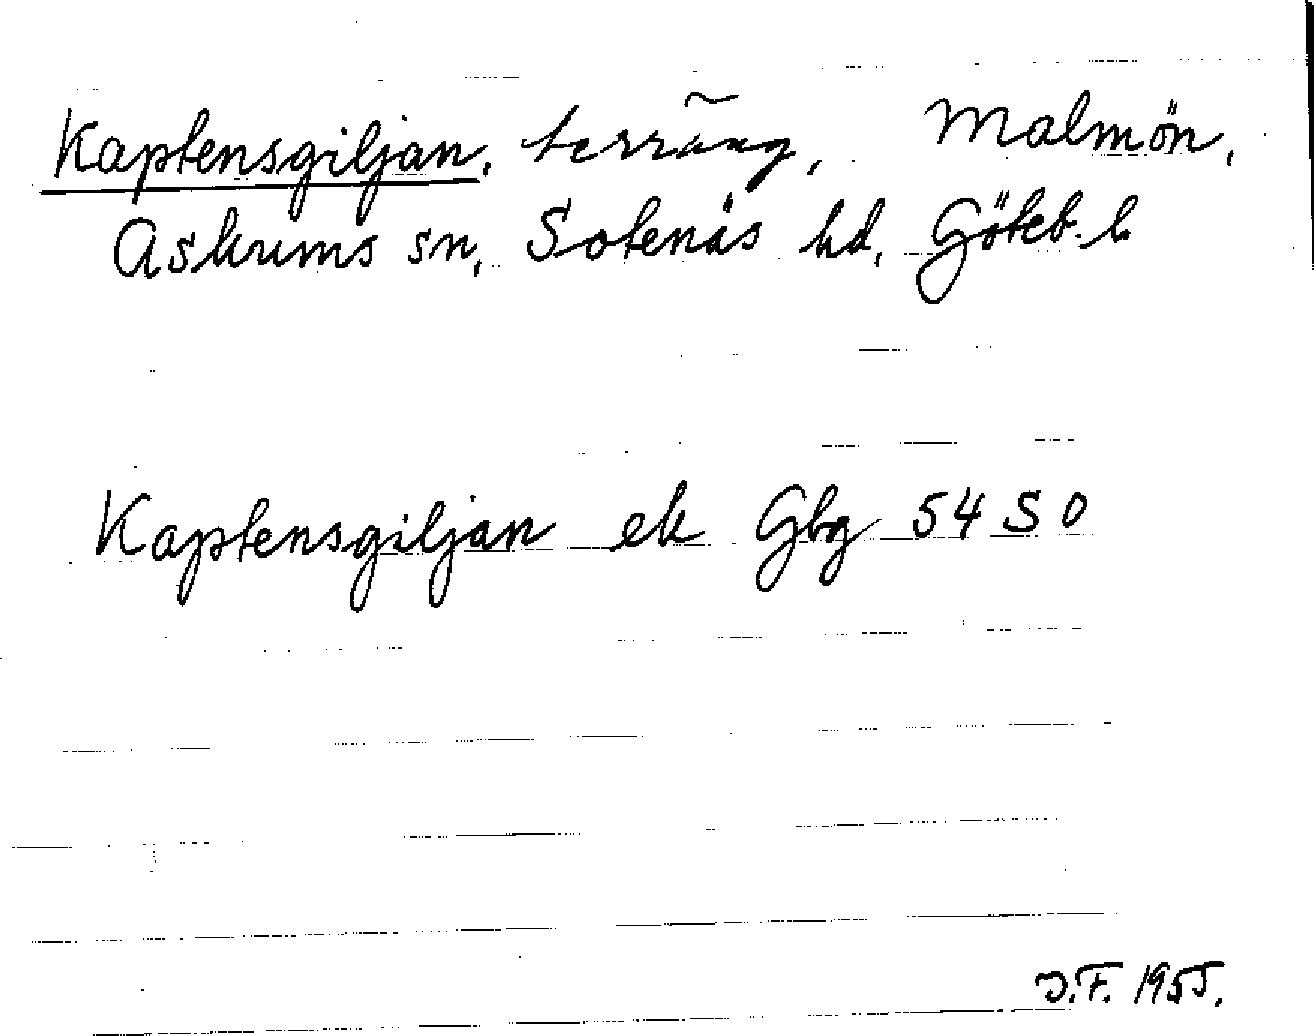 Kaptensgiljan, terräng, Malmön,
Askums sn, Sotenäs hd, Göteb. l.
Kaptensgiljan ek Gbg 54 S O
J.F. 1955.